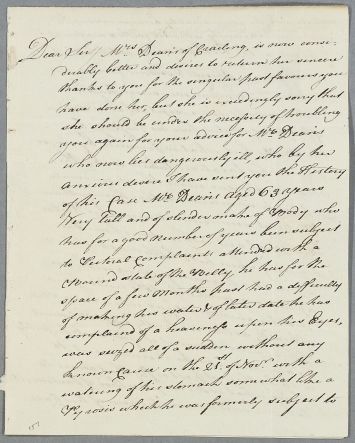 Dear Sir/ Mrs Deans of Crailing, is now consi-
derably better and desires to return her sincere
thanks to you for the singular past favours you
have done her, but she is exceedingly sorry that
she should be under the necessity of troubling
you again for your advice for Mr Deans
who now lies dangerously ill, who by her
anxious desire I have sent you the History
of his Case Mr Deans aged 63 years
Very Tall and of slender make of Body who
has for a good number of years been subject
to Pectoral Complaints attended with a
Bound state of the Belly, he has for the
space of a few Months past had a difficulty
of making his water & of later date he has
complained of a heaviness upon his Eyes,
was seized all of a sudden without any
known Cause on the 21st of Novr. with a
watering of his stomach somewhat like a
Pyrosis which he was formerly subject to